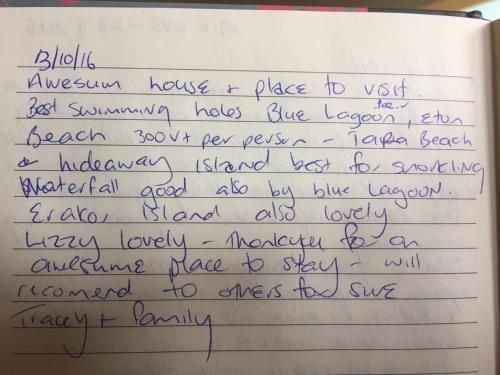 13/10/16
Awesum house + place to visit.
Best swimming holes Blue Lagoon, Eton
Beach 300vt per person - Beach
& hideaway island best for snorkling
Waterfall good also by blue Lagoon.
Erakor island also lovely
Lizzy lovely - Thankyou for an
awesume place to stay - will
recomend to others for sure
Tracey + family